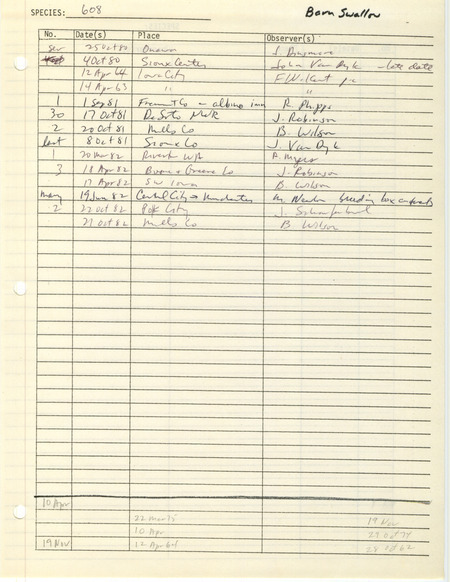 SPECIES: 608 Barn Swallow
No. Date(s) Place Observer(s)
25 Oct 80 Onawa J. Dinsmore
4 Oct 80 Sioux Center John Van Dyk - late date
12 Apr 64 Iowa City F W Kent pic
14 Apr 63 " "
1 1 Sep 81 Fremont Co - albino imm R. Phipps
30 17 Oct 81 DeSoto NWR J. Robinson
2 20 Oct 81 Mills Co B. Wilson
last 8 Oct 81 Sioux Co J. Van Dyk
1 20 Mar 82 Riverton WA R. Myers
3 18 Apr 82 Boone & Greene Co J. Robinson
17 Apr 82 SW Iowa B. Wilson
many 19 Jun 82 Central City → M. Newlon breeding box culverts
2 22 Oct 82 Polk City J.
21 Oct 82 Mills Co B Wilson
10 Apr
22 Mar 19 Nov
10 Apr 29 Oct 74
19 Nov 12 Apr 64 28 Oct 62